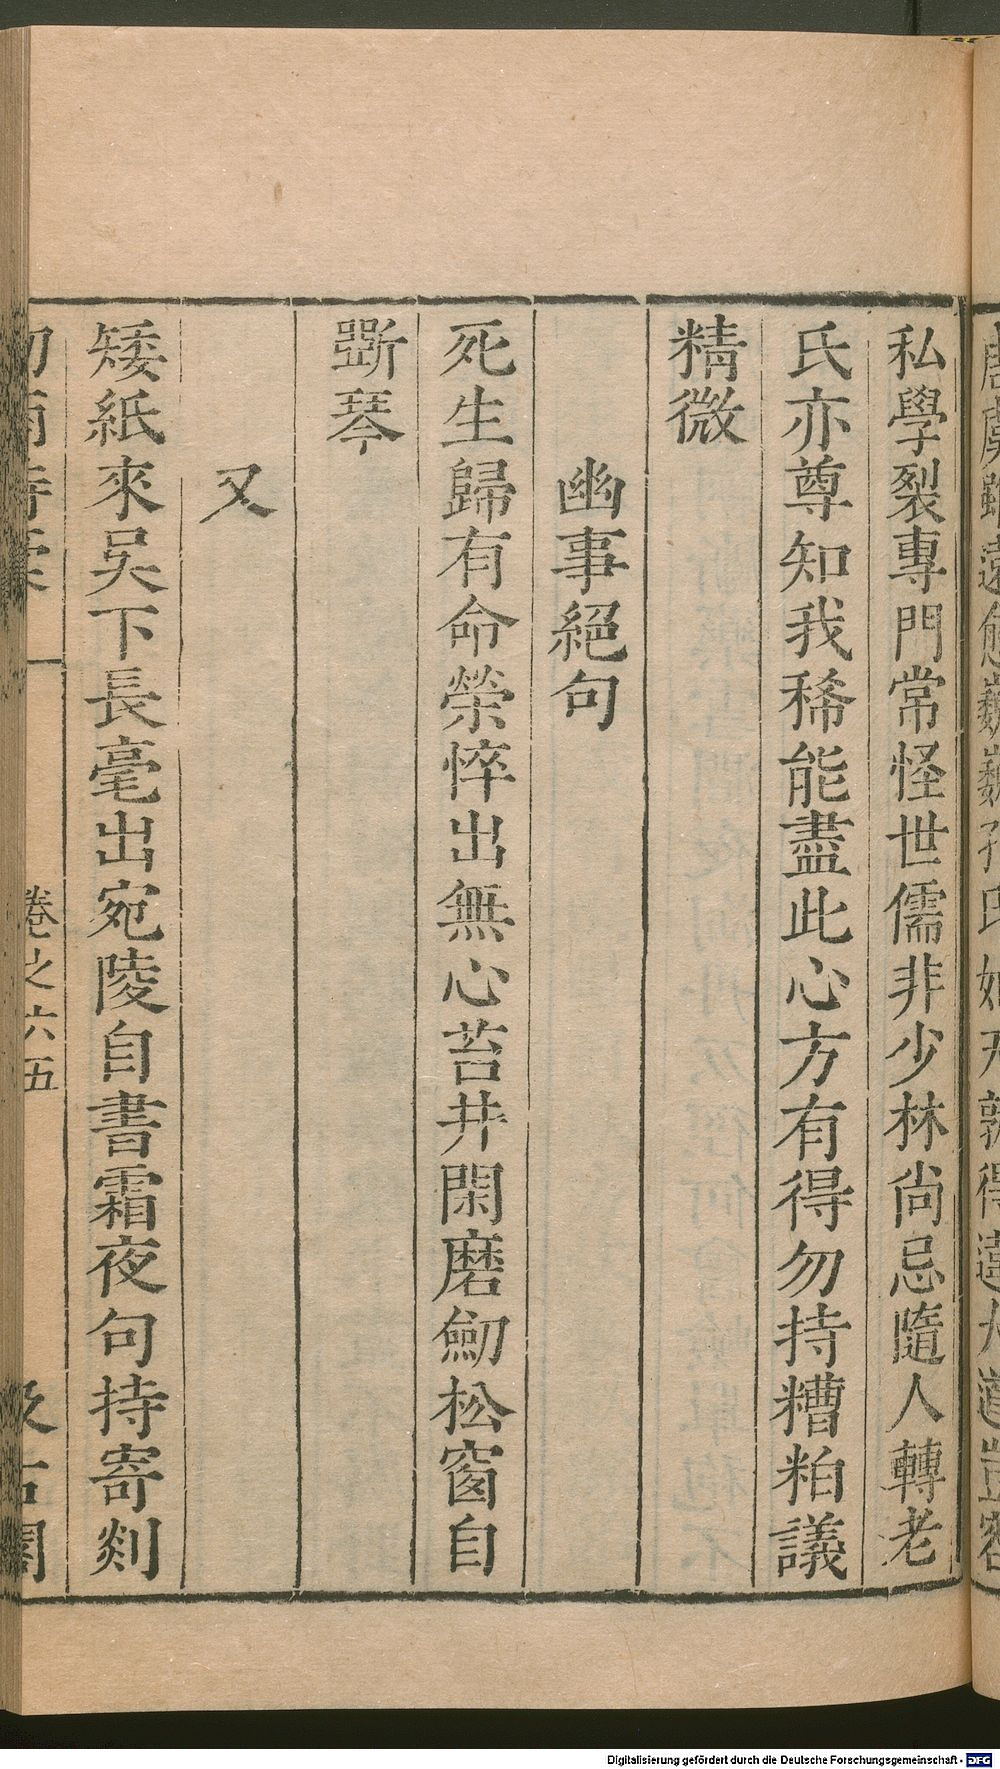 私學裂專門常怪世儒非少林尙忌隨人轉老
氏亦尊知我稀能盡此心方有得勿持糟粕議
精微
幽事絕句
死生歸有命榮悴出無心苔井閑磨劒松窗自
斵琴
又
矮紙來吳下長毫出宛陵自書霜夜句持寄剡
卷之六五
Digitalisierung gefördert durch die Deutsche Forschungsgemeinschaft - DFG